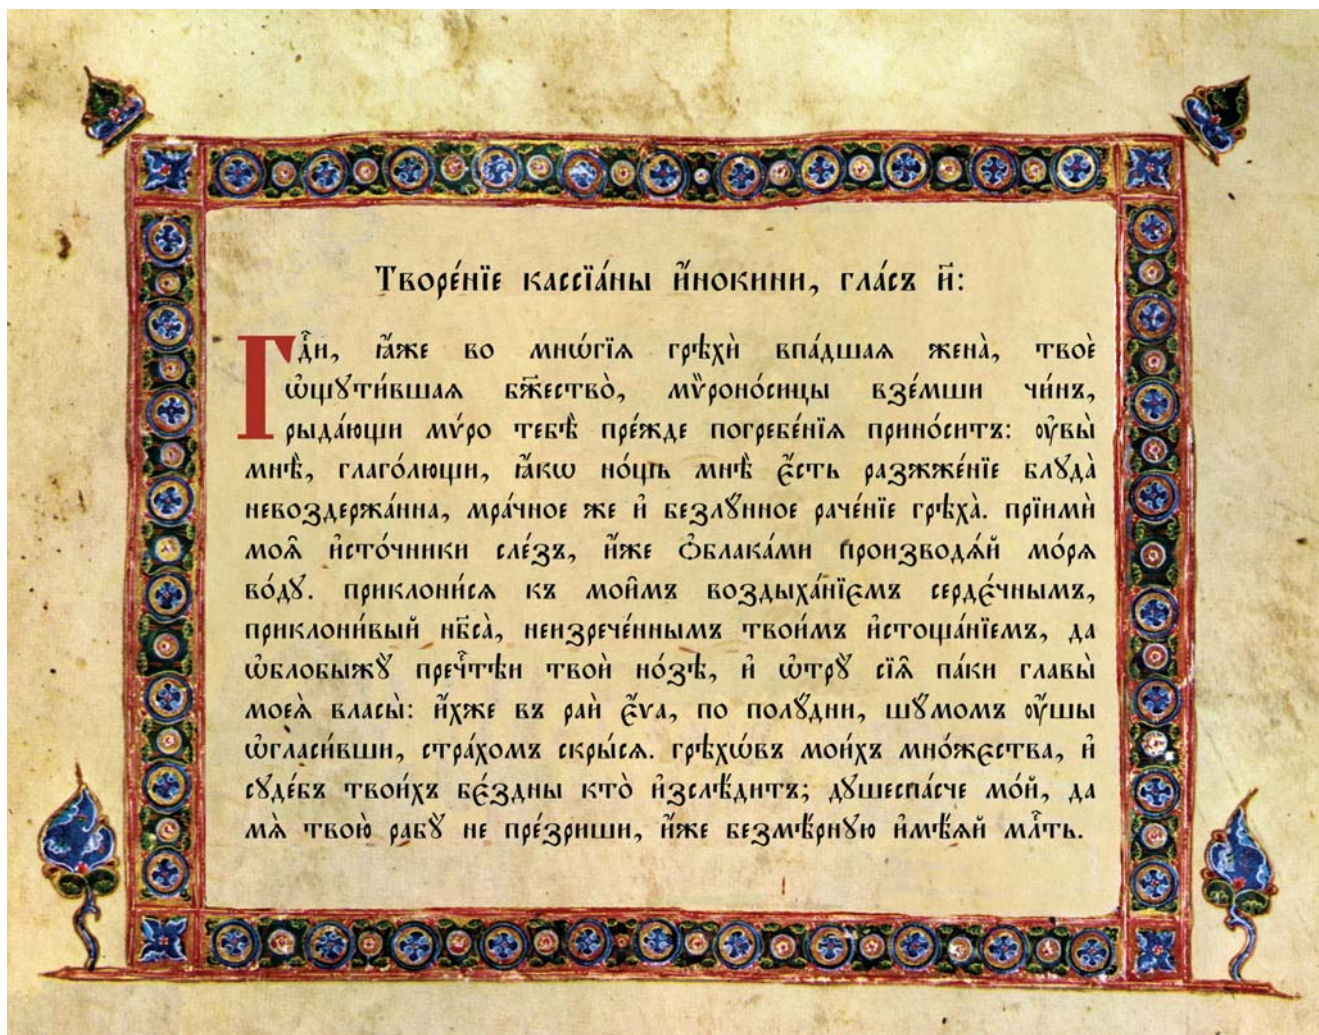 Творе́нїе кассїа́ны и҆́нокини, гла́съ и҃:
Гдⷭ҇и, ꙗ҆́же во мнѡ́гїѧ грѣхѝ впа́дшаѧ жена̀, твоѐ
ѡ҆щꙋти́вшаѧ бж҃ество̀, мѷроно́сицы взе́мши чи́нъ,
рыда́ющи мѵ́ро тебѣ̀ пре́жде погребе́нїѧ прино́ситъ: ᲂу҆вы̀
мнѣ̀, глаго́лющи, ꙗ҆́кѡ но́щь мнѣ̀ є҆́сть разжже́нїе блꙋда̀
невоздержа́нна, мра́чное же и҆ безлꙋ́нное раче́нїе грѣха̀. прїимѝ
моѧ̑ и҆сто́чники сле́зъ, и҆́же ѻ҆блака́ми производѧ́й мо́рѧ
во́дꙋ. приклони́сѧ къ мои̑мъ воздыха́нїємъ серде́чнымъ,
приклони́вый нб҃са̀, неизрече́ннымъ твои́мъ и҆стоща́нїемъ, да
ѡ҆блобыжꙋ̀ пречⷭ҇тѣи твоѝ но́зѣ, и҆ ѡ҆трꙋ̀ сїѧ̑ па́ки главы̀
моеѧ̀ власы̀: и҆́хже въ раѝ є҆́ѵа, по полꙋ́дни, шꙋ́момъ ᲂу҆́шы
ѡ҆гласи́вши, стра́хомъ скры́сѧ. грѣхѡ́въ мои́хъ мно́жєства, и҆
сꙋде́бъ твои́хъ бє́здны кто̀ и҆зслѣ́дитъ; дꙋшеспа́сче мо́й, да
мѧ̀ твою̀ рабꙋ̀ не пре́зриши, и҆́же безмѣ́рнꙋю и҆мѣ́ѧй млⷭ҇ть.